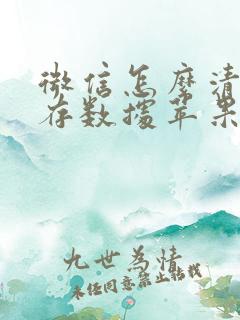 微信怎麼清
存数據苹果
九世為情
未经同意禁止转载